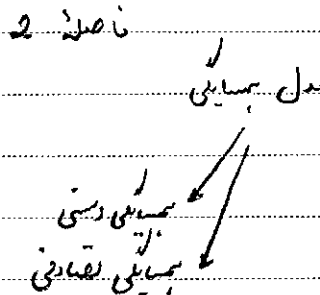 فاصلهٔ 2
مدل همسایگی
همسایگی دستی
همسایگی تصادفی